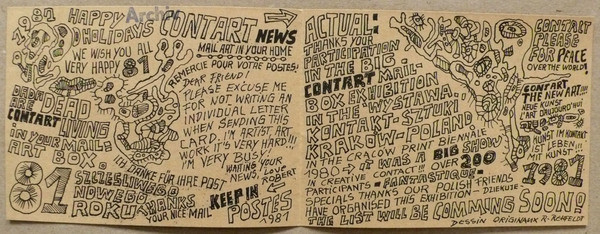 1981 HAPPY
HOLIDAYS
CONTART NEWS
MAIL ART IN YOUR HOME
WE WISH YOU ALL
VERY HAPPY 81
REMERCIE POUR VOTRE POSTES!
DEAR FRIEND!
PLEASE EXCUSE ME
FOR NOT WRITING AN
INDIVIDUAL LETTER
WHEN SENDING THIS
CARD, I'M ARTIST, ART
WORK IT'S VERY HARD!!!
I'M VERY BUSY
WAITING YOUR
NEWS, LOVE
ROBERT
DEAD
ARE
CONTART LIVING
IN YOUR MAIL:
ART BOX.
ICH DANKE FÜR IHRE POST
81 SZCZESLIWEGO
NOWEGO
ROKU
THANKS
YOUR NICE MAIL
KEEP IN
POSTES
1981
ACTUAL:
THANKS YOUR
PARTICIPATION
IN THE BIG
CONTART MAIL-
BOX EXHIBITION
IN THE WYSTAWA..
KONTAKT-SZTUKI
KRAKOW-POLAND
IN THE CRACOW PRINT BIENNALE
1980 IT WAS A BIG SHOW
IN CREATIVE CONTACT / OVER 200
PARTICIPANTS - FANTASTIQUE -
SPECIALS THANKS OUR POLISH FRIENDS
HAVE ORGANISED THIS EXHIBITION / DZIEKUJE
THE LIST WILL BE COMMING SOON!
DESSIN ORIGINAUX R. REHFELDT
CONTACT
PLEASE
FOR PEACE
OVER THE WORLD
CONTART
THE NEW ART!!!
NEUE KUNST
L'ART D'AUJOURD'HUI
KUNST IM KONTAKT
MIT LEBEN!!
MIT KUNST
1981
Archiv